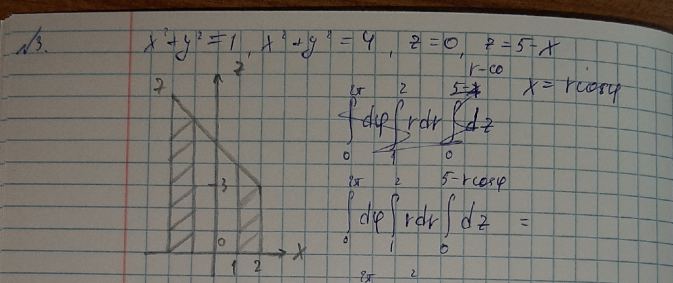 №3. x²+y²=1, x²+y²=4, z=0, z=5-x
z
7
3
0
1 2 x
r-co
∫₀^{2π} dφ ∫₁^{2} rdr ∫₀^{5-x} dz x = rcosφ
∫₀^{2π} dφ ∫₁^{2} rdr ∫₀^{5-rcosφ} dz =
2π 2